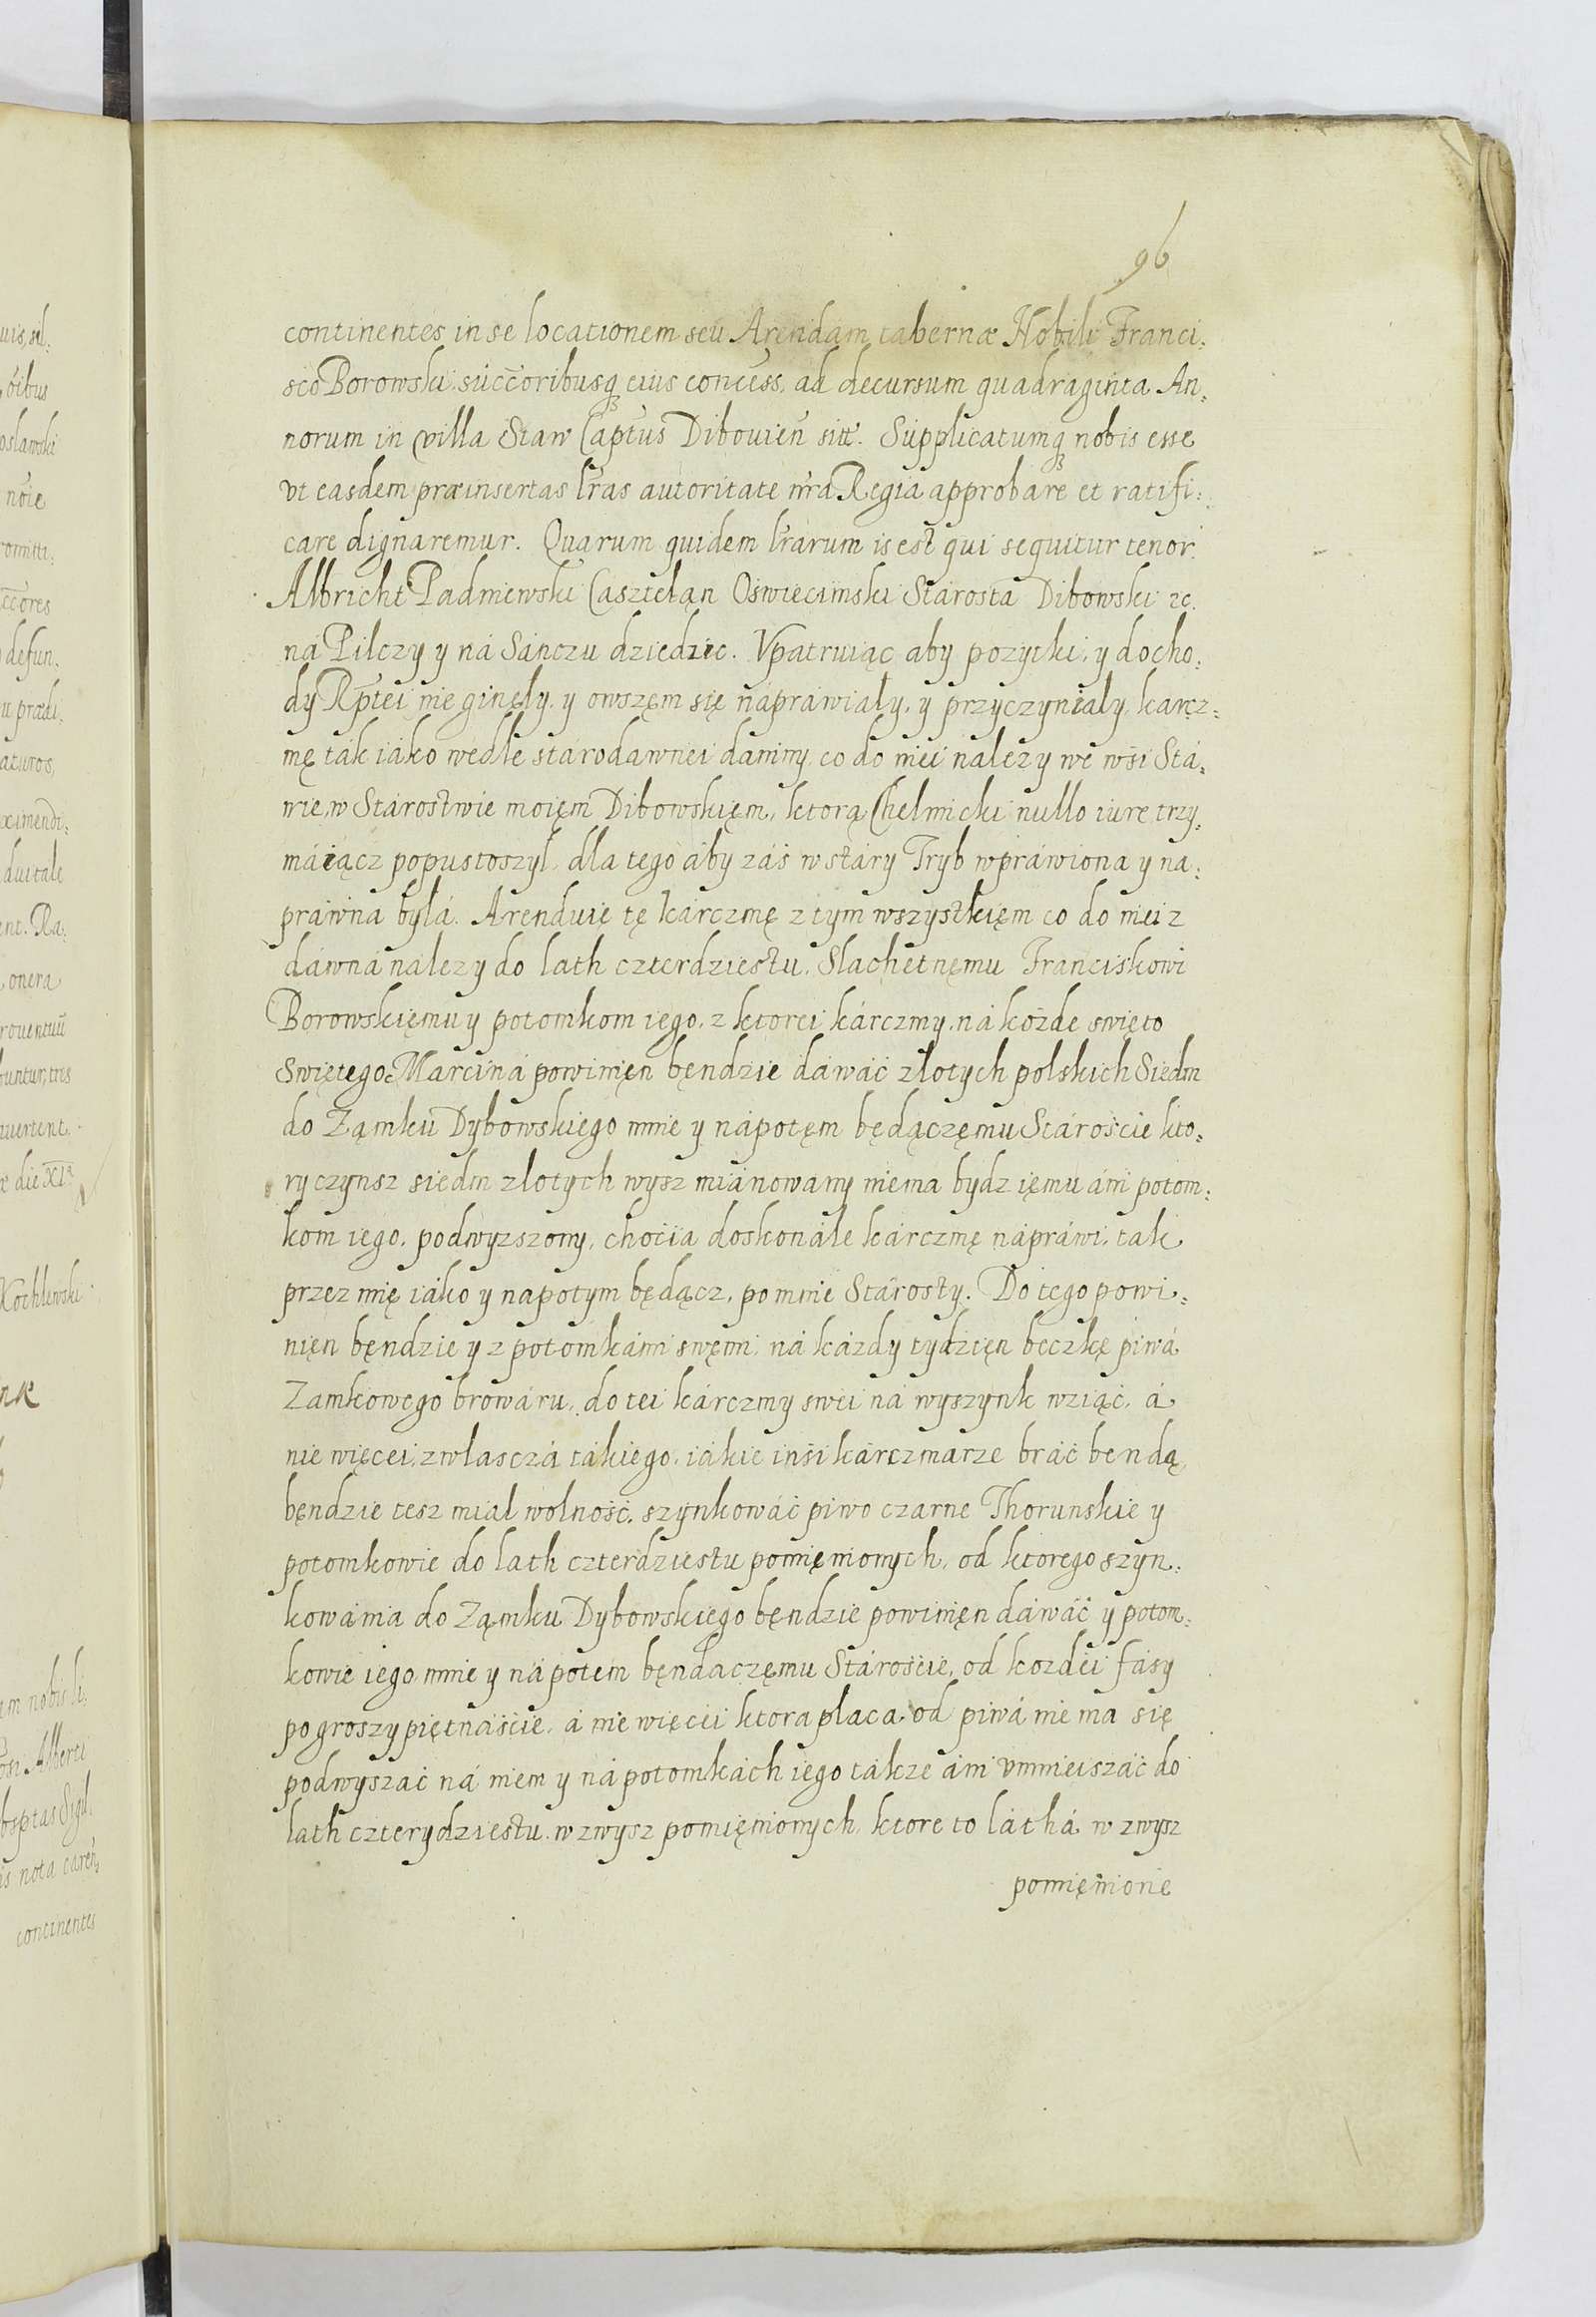 96
continentes in se locationem seu Arendam tabernæ Nobili Franci:
sco Borowski succ̄oribusq eius concess. ad decursum quadraginta An:
norum in villa Staw Captus Dibouien̄ sitt. Supplicatumq nobis esse
vt easdem præinsertas lr̄as autoritate nr̄a Regia approbare et ratifi:
care dignaremur. Quarum quidem lr̄arum is est qui sequitur tenor.
Albricht Padniewski Caszteląn Oswiecimski Stárosta Dibowski zc.
ná Pilczy y ná Sánczu dziedzic. Vpatruiąc aby pozytki, y docho:
dy Rptei nie ginęły, y owszęm się náprawiały, y przyczyniały, karcz:
mę ták iáko wedle stárodawnei daniny, co do niei nálezy we wśi Stá:
wie, w Stárostwie moięm Dibowskięm, ktorą Chelmicki nullo iure trzy:
máiącz popustoszył, dla tego áby záś w stáry Tryb wpráwiona y na:
práwna bylá. Arenduię tę kárczmę z tym wszystkięm co do niei z
dáwná nálezy do lath czterdziestu, Slachetnęmu Franciskowi
Borowskięmu y potomkom iego, z ktorei kárczmy, ná kożde swięto
Swiętego Marciná powinięn będzie dáwáć złotych polskich Siedm
do Ząmku Dybowskiego mnie y nápotęm będączęmu Stárośćie kto:
ry czynsz siedm złotych wysz miánowany niema bydz ięmu áni potom:
kom iego, podwyzszony, choćia doskonále kárczmę nápráwi, tak
przez mię iáko y napotym będącz, po mnie Stárosty. Do tego powi:
nięn będzie y z potomkámi swęmi, ná káżdy tydzięn beczkę piwá
Zamkowego browáru, do tei kárczmy swei ná wyszynk wziąć, á
nie więcei, zwłasczá tákiego, iákie inśi kárczmarze bráć bendą,
będzie tesz miał wolność, szynkowáć piwo czarne Thorunskie y
potomkowie do lath czterdziestu pomięnionych, od ktorego szyn:
kowánia do Ząmku Dybowskiego będzie powinięn dáwáć y potom:
kowie iego mnie y nápotem bęndaczęmu Stárośćie, od kozdei fásy
po groszy piętnaśćie, á nie więcei ktora płaca od piwá nie ma się
podwyszáć ná niem y ná potomkách iego tákze áni vmnieiszáć do
lath czterydziestu w zwysz pomięnionych, ktore to láthá w zwysz
pomięnionę